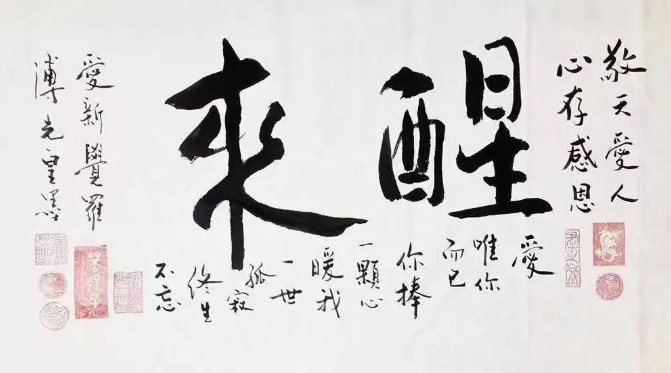 敬天愛人
心存感恩
醒來
愛
唯你
而已
你捧
一顆心
暖我
一世
孤寂
終生
不忘
愛新覺羅
溥光皇墨